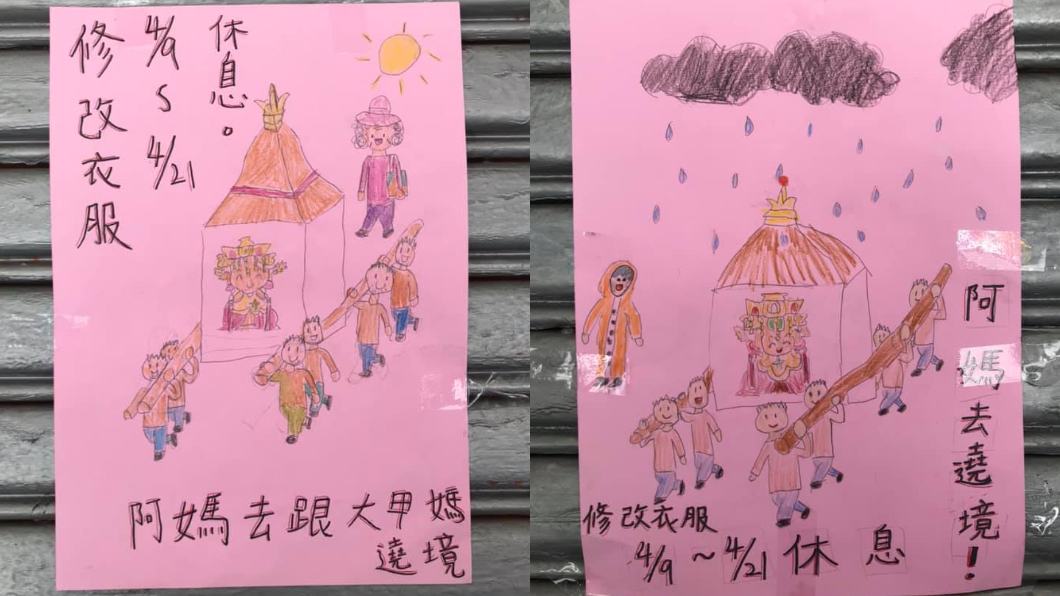 修改衣服
4/9
S
4/21
休息。
阿媽去跟大甲媽
遶境
阿媽去遶境！
修改衣服
4/9～4/21休息